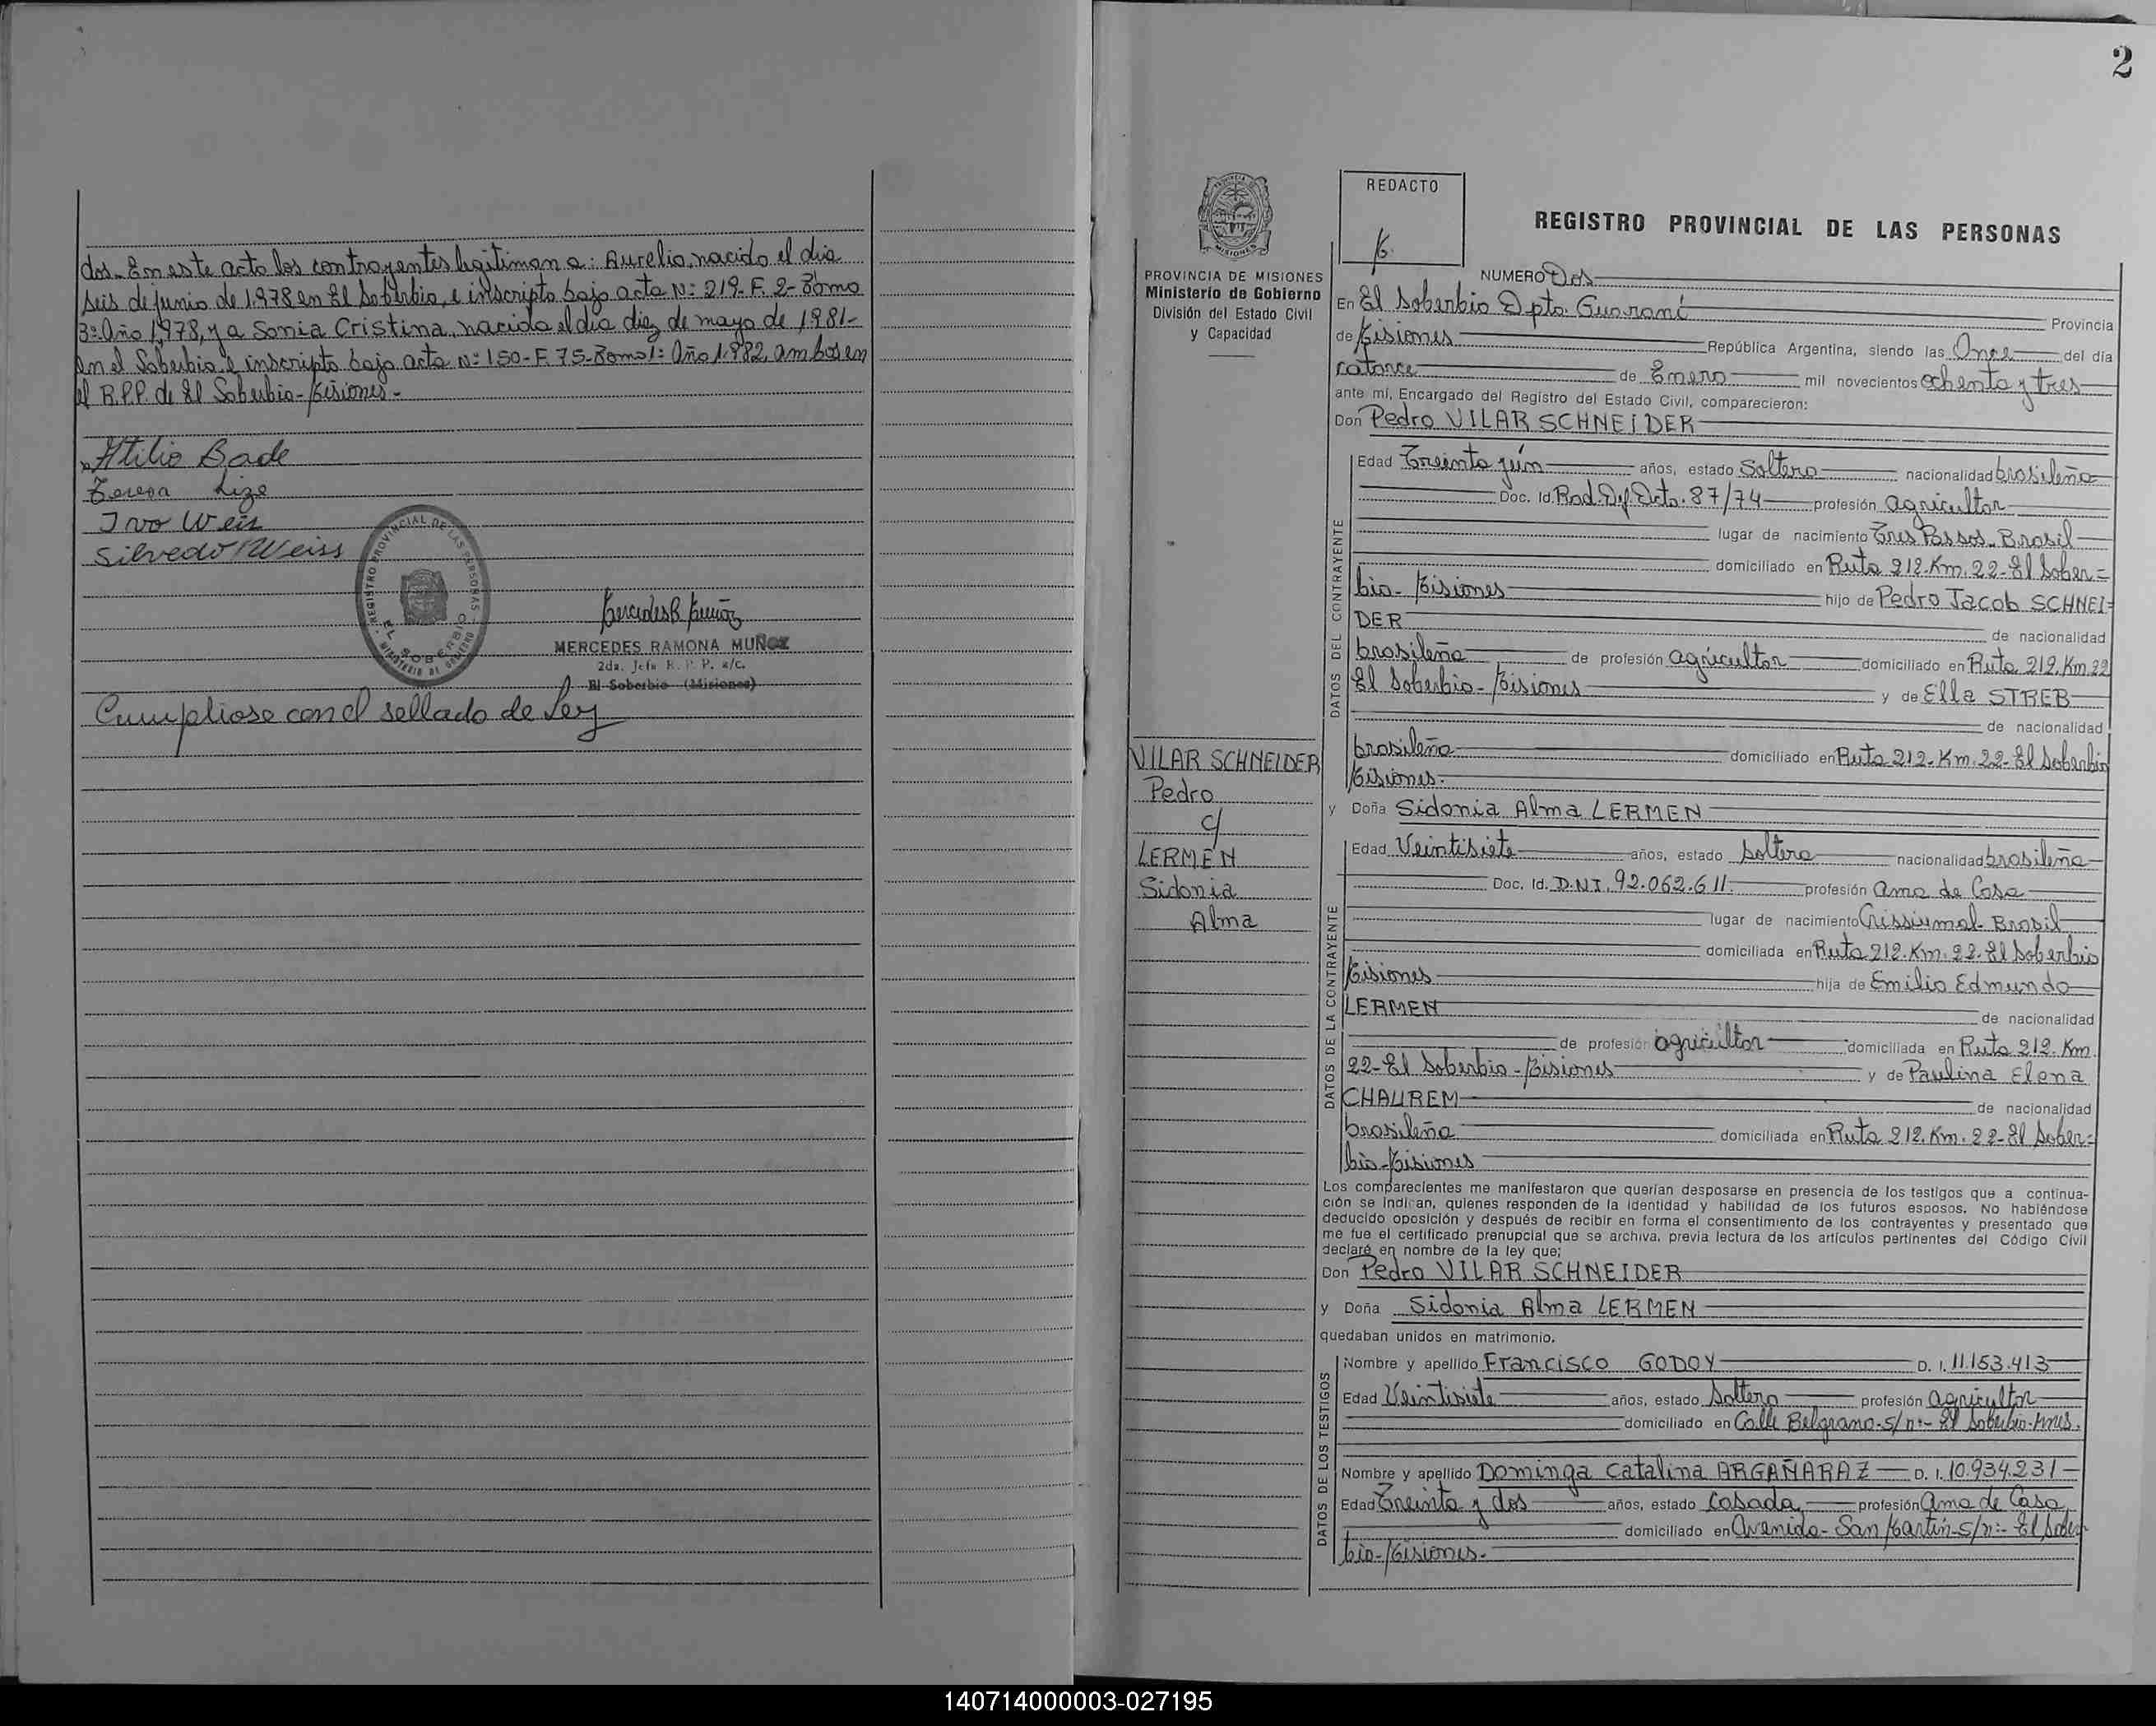 dos.- En este acto los contrayentes legitiman a: Aurelio, nacido el dia
seis de junio de 1978 en El Soberbio, e inscripto bajo acta Nº: 219- F. 2- Tomo
3º: Año 1,978, y a Sonia Cristina, nacida el dia diez de mayo de 1981-
en el Soberbio e inscripta bajo acta Nº: 150- F. 75- Tomo 1º: Año 1.982, ambos en
el R.P.P. de El Soberbio- Misiones.-
Atilio Bade
Teresa Lize
Ivo Weis
Silvedo Weiss
REGISTRO PROVINCIAL DE LAS PERSONAS
EL SOBERBIO
MINISTERIO DE GOBIERNO
Mercedes R. Muñoz
MERCEDES RAMONA MUÑOZ
2da. Jefe R. P. P. a/c.
El Soberbio (Misiones)
Cumpliose con el sellado de Ley
2
PROVINCIA DE MISIONES
Ministerio de Gobierno
División del Estado Civil
y Capacidad
VILAR SCHNEIDER
Pedro
c/
LERMEN
Sidonia
Alma
REDACTO
REGISTRO PROVINCIAL DE LAS PERSONAS
NUMERO Dos
En El Soberbio Dpto. Guaraní Provincia
de Misiones República Argentina, siendo las Once del día
catorce de Enero mil novecientos ochenta y tres
ante mí, Encargado del Registro del Estado Civil, comparecieron:
Don Pedro VILAR SCHNEIDER
DATOS DEL CONTRAYENTE
Edad Treinta y un años, estado Soltero nacionalidad brasileña
Doc. Id. Rad. Def. Dcto. 87/74 profesión agricultor
lugar de nacimiento Tres Passos- Brasil
domiciliado en Ruta 212. Km. 22- El Sober=
bio- Misiones hijo de Pedro Jacob SCHNEI=
DER de nacionalidad
brasileña de profesión agricultor domiciliado en Ruta 212. Km 22
El Soberbio- Misiones y de Ella STREB
de nacionalidad
brasileña domiciliado en Ruta 212- Km. 22- El Soberbio
Misiones.-
y Doña Sidonia Alma LERMEN
DATOS DE LA CONTRAYENTE
Edad Veintisiete años, estado Soltera nacionalidad brasileña
Doc. Id. D.N.I. 92.062.611. profesión ama de Casa
lugar de nacimiento Crissiumal- Brasil
domiciliada en Ruta 212. Km. 22- El Soberbio
Misiones hija de Emilio Edmundo
LERMEN de nacionalidad
de profesión agricultor domiciliada en Ruta 212. Km.
22- El Soberbio- Misiones y de Paulina Elena
CHAUREM de nacionalidad
brasileña domiciliada en Ruta 212. Km. 22- El Sober=
bio- Misiones
Los comparecientes me manifestaron que querían desposarse en presencia de los testigos que a continua-
ción se indican, quienes responden de la identidad y habilidad de los futuros esposos. No habiéndose
deducido oposición y después de recibir en forma el consentimiento de los contrayentes y presentado que
me fue el certificado prenupcial que se archiva, previa lectura de los artículos pertinentes del Código Civil
declaré en nombre de la ley que;
Don Pedro VILAR SCHNEIDER
y Doña Sidonia Alma LERMEN
quedaban unidos en matrimonio.
DATOS DE LOS TESTIGOS
Nombre y apellido Francisco GODOY D. I. 11.153.413
Edad Veintisiete años, estado Soltero profesión agricultor
domiciliado en Calle Belgrano- s/nº:- El Soberbio- Mnes.
Nombre y apellido Dominga Catalina ARGAÑARAZ D. I. 10.934.231
Edad Treinta y dos años, estado Casada profesión ama de Casa
domiciliado en Avenida- San Martin- s/nº:- El Sober
bio- Misiones.-
140714000003-027195